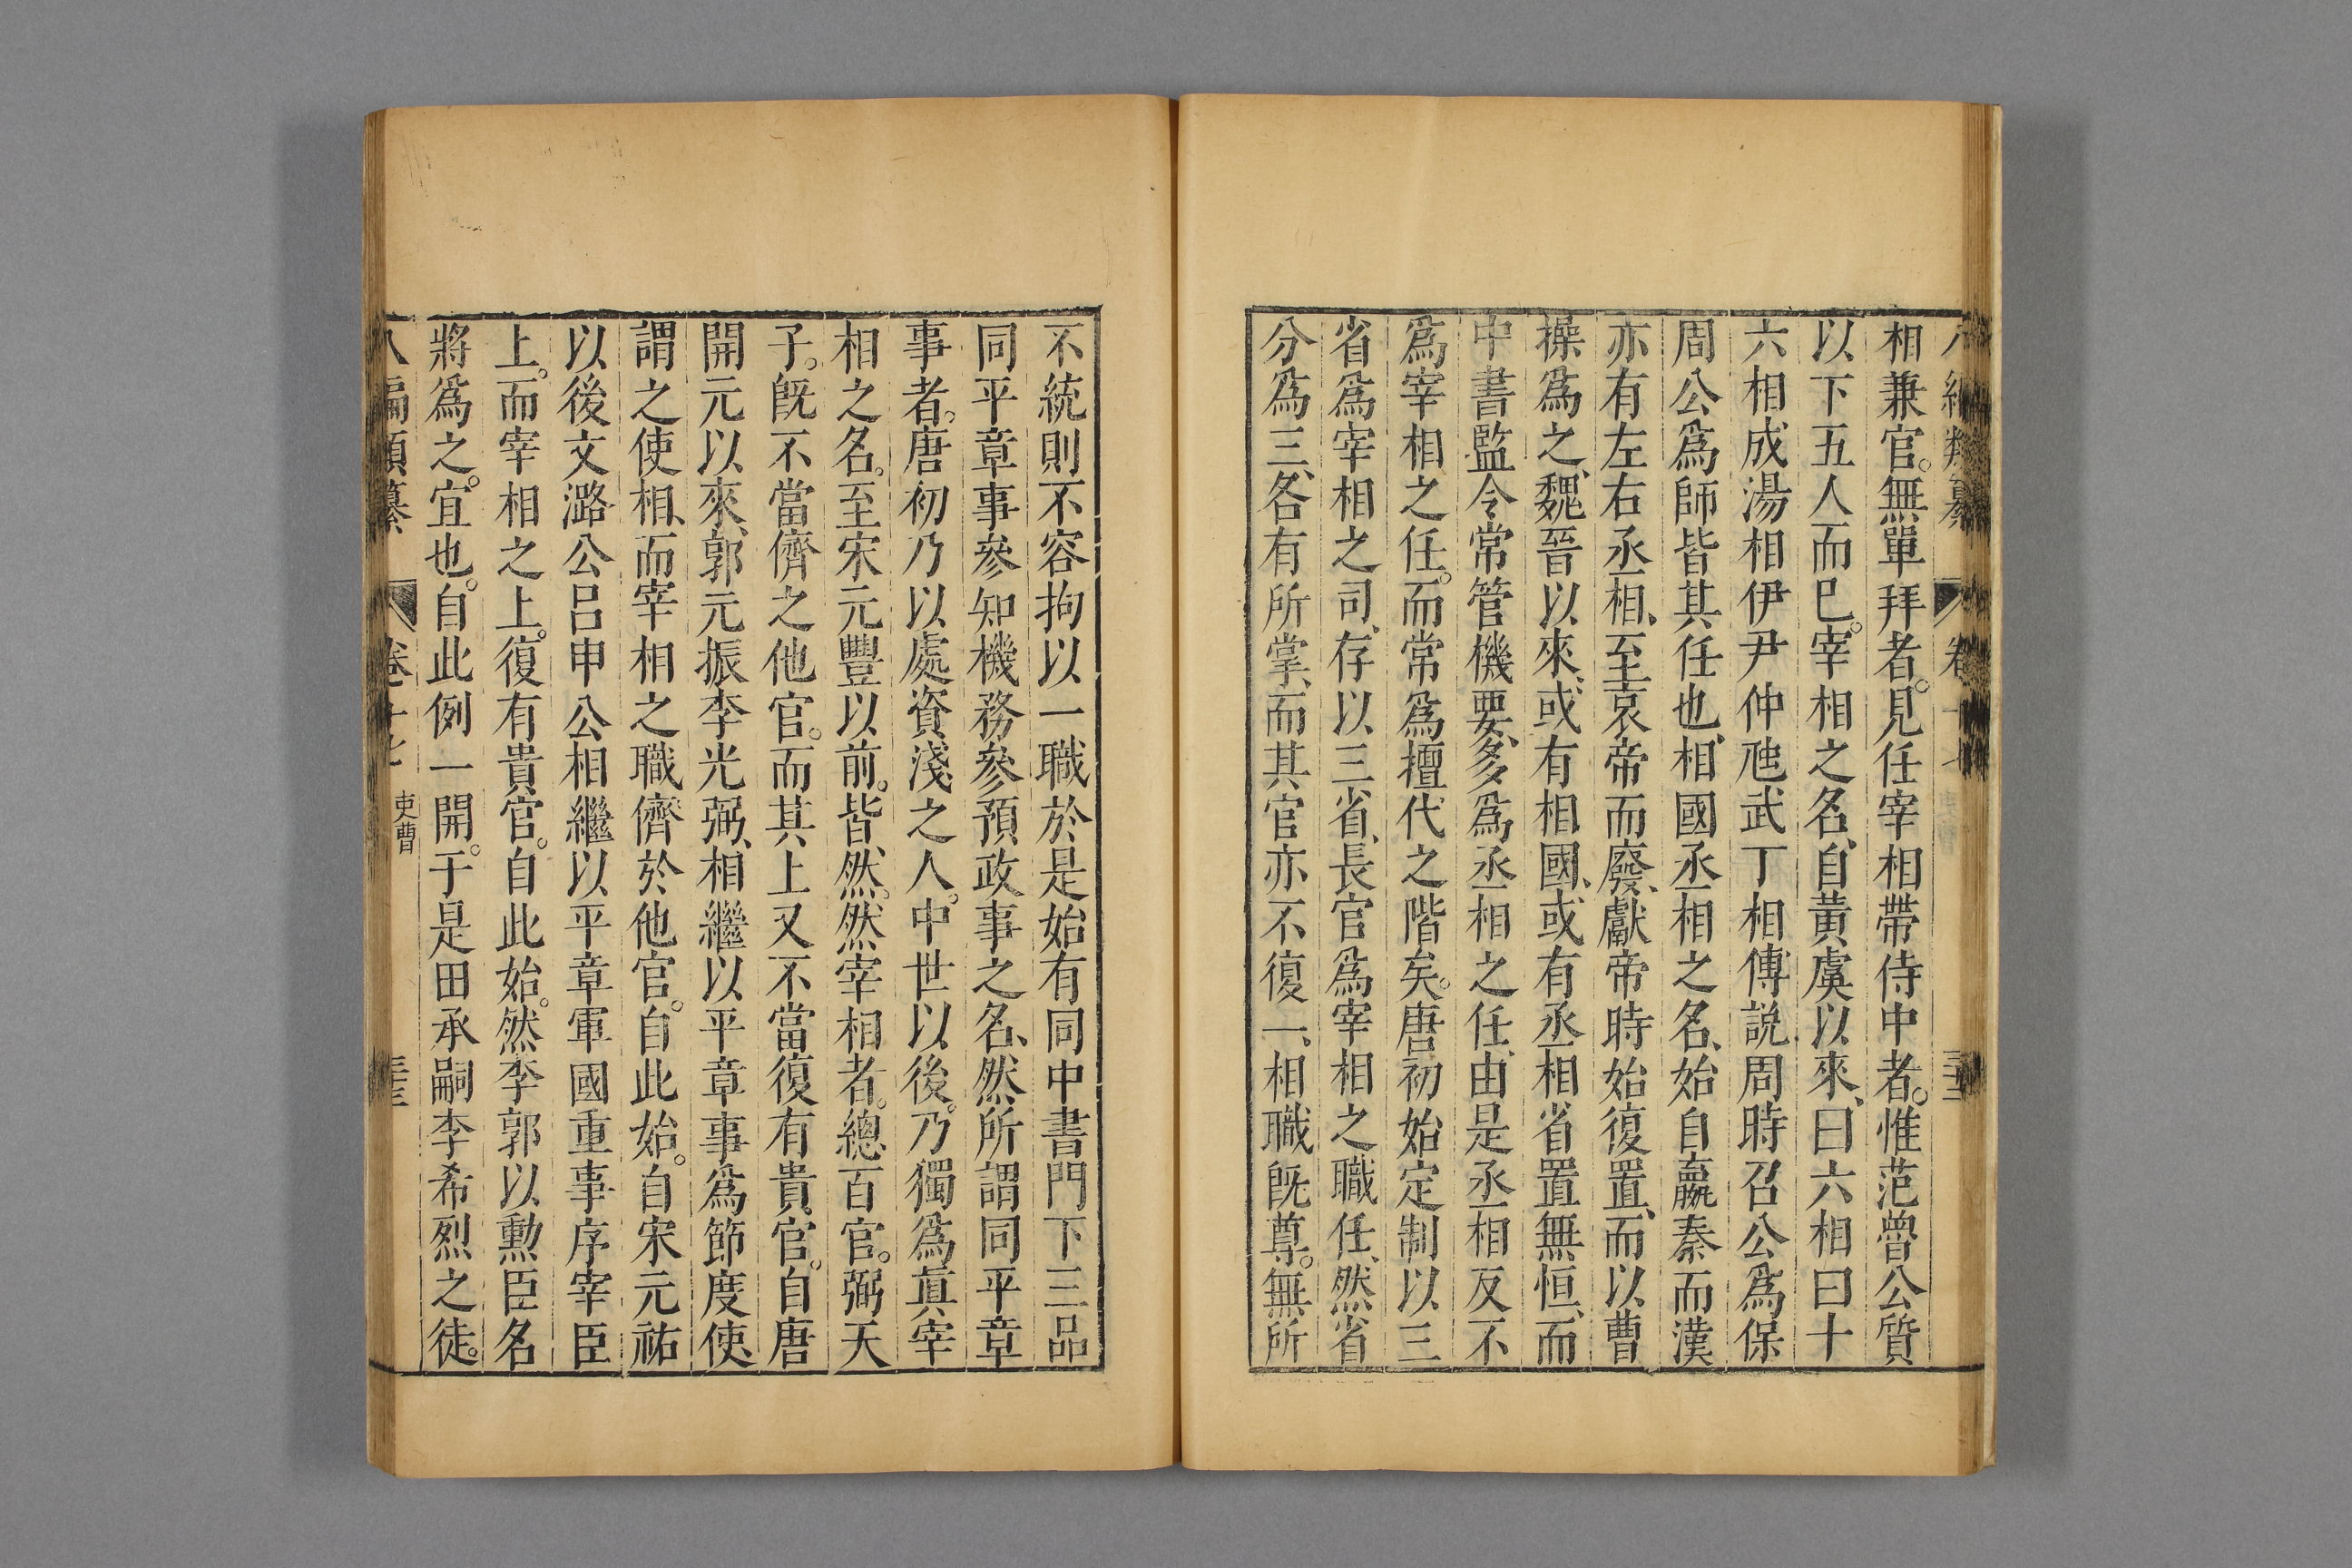 相兼官。無單拜者。見任宰相帶侍中者。惟范曾公質
以下五人而已。宰相之名、自黃虞以來、曰六相曰十
六相成湯相伊尹仲虺武丁相傅説周時召公爲保
周公爲師皆其任也、相國丞相之名、始自嬴秦而漢
亦有左右丞相、至哀帝而廢、獻帝時始復置、而以曹
操爲之、魏晉以來、或有相國、或有丞相省置無恒、而
中書監令常管機要、多爲丞相之任、由是丞相反不
爲宰相之任。而常爲擅代之階矣。唐初始定制以三
省爲宰相之司、存以三省、長官爲宰相之職任、然省
分爲三、各有所掌、而其官亦不復一、相職既尊。無所
不統則不容拘以一職於是始有同中書門下三品
同平章事參知機務參預政事之名、然所謂同平章
事者。唐初乃以處資淺之人。中世以後。乃獨爲眞宰
相之名。至宋元豐以前。皆、然。然宰相者。總百官。弼天
子。既不當儕之他官。而其上又不當復有貴官。自唐
開元以來、郭元振李光弼、相繼以平章事爲節度使、
謂之使相、而宰相之職儕於他官。自此始。自宋元祐
以後文潞公呂申公相繼以平章軍國重事序宰臣
上。而宰相之上。復有貴官。自此始。然李郭以勳臣名
將爲之。宜也。自此例一開。于是田承嗣李希烈之徒。
八編類纂 卷十七 吏曹 三十三